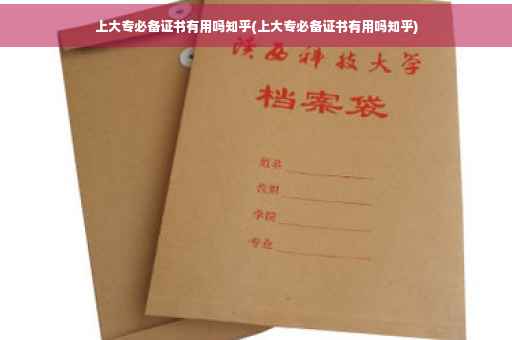 上大专必备证书有用吗知乎(上大专必备证书有用吗知乎)
陕西科技大学
档案袋
姓名
学院
专业